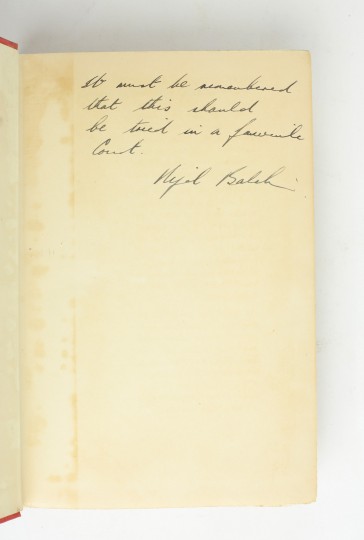 It must be remembered
that this should
be tried in a juvenile
Court.
Nigel Balchin